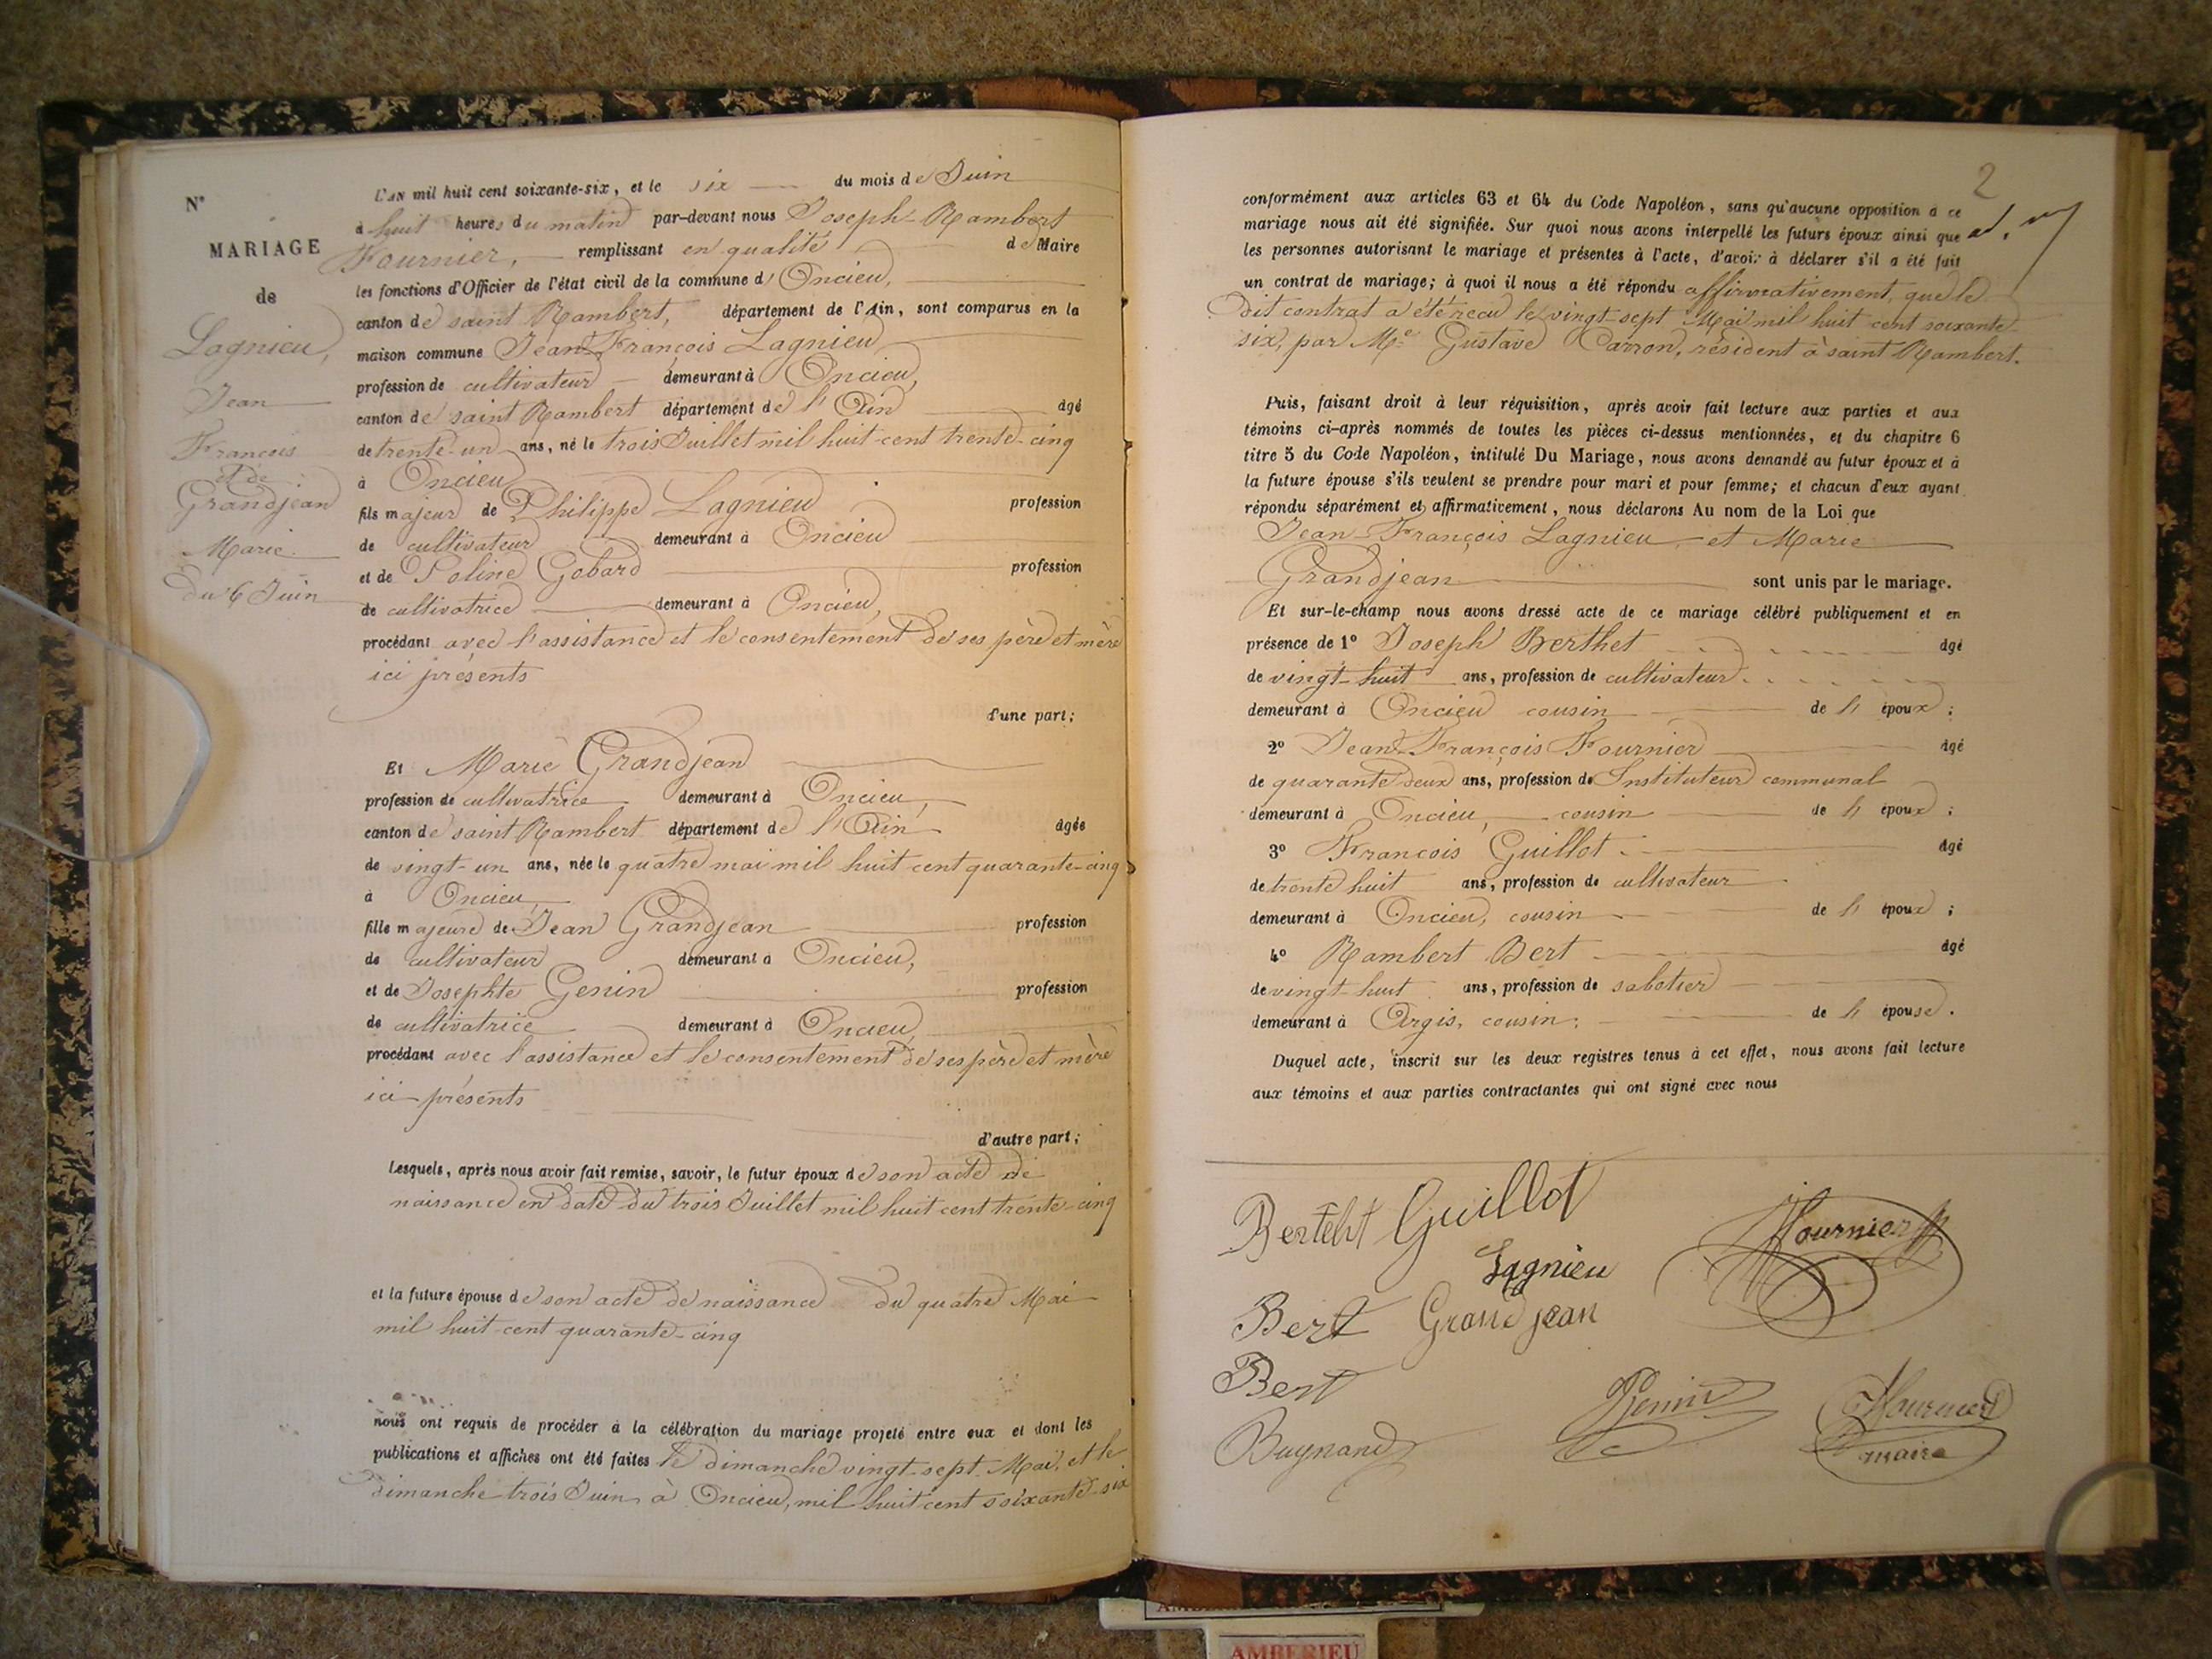 N°
MARIAGE
de
Lagnieu,
Jean
François
et de
Grandjean
Marie
Du 6 Juin
L'AN mil huit cent soixante-six, et le six du mois de Juin
à huit heures du matin par-devant nous Joseph-Rambert
Fournier, remplissant en qualité de Maire
les fonctions d'Officier de l'état civil de la commune d'Oncieu,
canton de saint Rambert, département de l'Ain, sont comparus en la
maison commune Jean-François Lagnieu
profession de cultivateur demeurant à Oncieu,
canton de saint Rambert département de l'Ain âgé
de trente-un ans, né le trois Juillet mil huit-cent trente-cinq
à Oncieu
fils majeur de Philippe Lagnieu profession
de cultivateur demeurant à Oncieu
et de Poline Gobard profession
de cultivatrice demeurant à Oncieu,
procédant avec l'assistance et le consentement de ses père et mère
ici présents
d'une part;
Et Marie Grandjean
profession de cultivatrice demeurant à Oncieu,
canton de saint Rambert département de l'Ain âgée
de vingt-un ans, née le quatre mai mil huit cent quarante-cinq
à Oncieu,
fille majeure de Jean Grandjean profession
de cultivateur demeurant à Oncieu,
et de Josephte Genin profession
de cultivatrice demeurant à Oncieu,
procédant avec l'assistance et le consentement de ses père et mère
ici présents
d'autre part;
Lesquels, après nous avoir fait remise, savoir, le futur époux de son acte de
naissance en date du trois Juillet mil huit cent trente-cinq
et la future épouse de son acte de naissance du quatre Mai
mil huit-cent quarante-cinq
nous ont requis de procéder à la célébration du mariage projeté entre eux et dont les
publications et affiches ont été faites le dimanche vingt-sept Mai, et le
dimanche trois Juin à Oncieu, mil huit cent soixante-six
2
conformément aux articles 63 et 64 du Code Napoléon, sans qu'aucune opposition à ce
mariage nous ait été signifiée. Sur quoi nous avons interpellé les futurs époux ainsi que
les personnes autorisant le mariage et présentes à l'acte, d'avoir à déclarer s'il a été fait
un contrat de mariage; à quoi il nous a été répondu affirmativement, que le
dit contrat a été reçu le vingt-sept Mai mil huit cent soixante-
six, par Me Gustave Carron, résident à saint Rambert.
Puis, faisant droit à leur réquisition, après avoir fait lecture aux parties et aux
témoins ci-après nommés de toutes les pièces ci-dessus mentionnées, et du chapitre 6
titre 5 du Code Napoléon, intitulé Du Mariage, nous avons demandé au futur époux et à
la future épouse s'ils veulent se prendre pour mari et pour femme; et chacun d'eux ayant
répondu séparément et affirmativement, nous déclarons Au nom de la Loi que
Jean-François Lagnieu et Marie
Grandjean sont unis par le mariage.
Et sur-le-champ nous avons dressé acte de ce mariage célébré publiquement et en
présence de 1° Joseph Berthet âgé
de vingt-huit ans, profession de cultivateur
demeurant à Oncieu cousin de l'époux;
2° Jean-François Fournier âgé
de quarante deux ans, profession de Instituteur communal
demeurant à Oncieu, cousin de l'époux;
3° François Guillot âgé
de trente huit ans, profession de cultivateur
demeurant à Oncieu, cousin de l'époux;
4° Rambert Bert âgé
de vingt-huit ans, profession de sabotier
demeurant à Argis, cousin; de l'épouse.
Duquel acte, inscrit sur les deux registres tenus à cet effet, nous avons fait lecture
aux témoins et aux parties contractantes qui ont signé avec nous
Bertelht Guillot
Fournier
Lagnieu
Bert Grandjean
Bert
Genin
Fournier
Buynand
maire
AMBERIEU